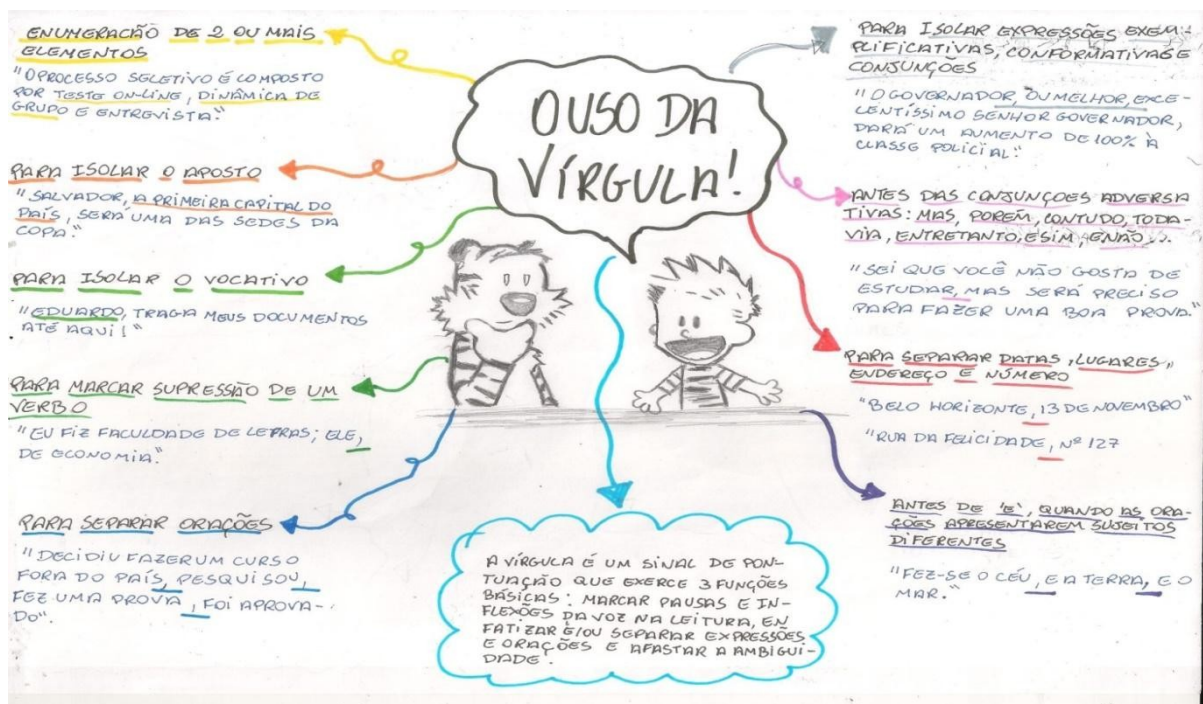 O USO DA
VÍRGULA!
ENUMERAÇÃO DE 2 OU MAIS
ELEMENTOS
"O PROCESSO SELETIVO É COMPOSTO
POR TESTE ON-LINE, DINÂMICA DE
GRUPO E ENTREVISTA."
PARA ISOLAR O APOSTO
"SALVADOR, A PRIMEIRA CAPITAL DO
PAÍS, SERÁ UMA DAS SEDES DA
COPA."
PARA ISOLAR O VOCATIVO
"EDUARDO, TRAGA MEUS DOCUMENTOS
ATÉ AQUI!"
PARA MARCAR SUPRESSÃO DE UM
VERBO
"EU FIZ FACULDADE DE LETRAS; ELE,
DE ECONOMIA."
PARA SEPARAR ORAÇÕES
"DECIDIU FAZER UM CURSO
FORA DO PAÍS, PESQUISOU,
FEZ UMA PROVA, FOI APROVA-
DO".
A VÍRGULA É UM SINAL DE PON-
TUAÇÃO QUE EXERCE 3 FUNÇÕES
BÁSICAS: MARCAR PAUSAS E IN-
FLEXÕES DA VOZ NA LEITURA, EN
FATIZAR E/OU SEPARAR EXPRESSÕES
E ORAÇÕES E AFASTAR A AMBIGUI-
DADE.
PARA ISOLAR EXPRESSÕES EXEM-
PLIFICATIVAS, CONFORMATIVAS E
CONJUNÇÕES
"O GOVERNADOR, OU MELHOR, EXCE-
LENTÍSSIMO SENHOR GOVERNADOR,
DARÁ UM AUMENTO DE 100% À
CLASSE POLICIAL."
ANTES DAS CONJUNÇOES ADVERSA
TIVAS: MAS, PORÉM, CONTUDO, TODA-
VIA, ENTRETANTO, E SIM, E NÃO...
"SEI QUE VOCÊ NÃO GOSTA DE
ESTUDAR, MAS SERÁ PRECISO
PARA FAZER UMA BOA PROVA."
PARA SEPARAR DATAS, LUGARES,
ENDEREÇO E NÚMERO
"BELO HORIZONTE, 13 DE NOVEMBRO"
"RUA DA FELICIDADE, Nº 127
ANTES DE 'E', QUANDO AS ORA-
ÇÕES APRESENTAREM SUJEITOS
DIFERENTES
"FEZ-SE O CÉU, E A TERRA, E O
MAR."